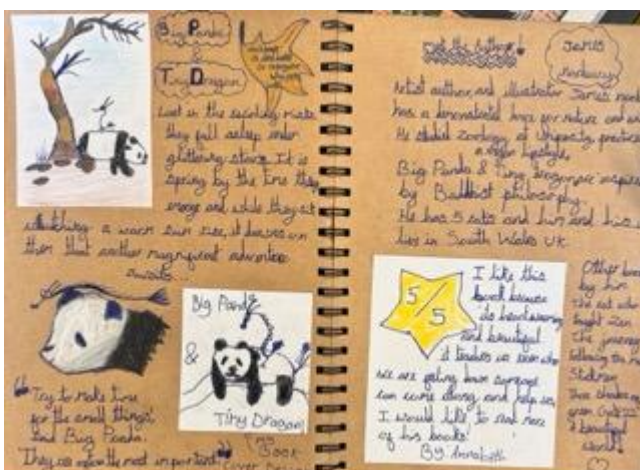 Big Panda
&
Tiny Dragon
Lost in the swirling mists
they fall asleep under
glittering stars. It is
spring by the time they
emerge and while they sit
watching a warm sun rise, it dawns on
them that another magnificent adventure
awaits...
Big Panda
&
Tiny Dragon
"Try to make time
for the small things'
said Big Panda.
'They are often the most important."
My
Book
Cover
Meet the Author!
James
Norbury
Artist author, and illustrator James
has a demonstrated love for nature and
He studied Zoology at University,
a lifestyle,
Big Panda & Tiny Dragon inspired
by Buddhist philosophy.
He has 5 cats and him and his
live in South Wales UK.
5/5
I like this
book because
so heartwarming
and beautiful
it teaches us even when
we are feeling down someone
can come along and help us,
I would like to read more
of his books!
By Annabeth
Other books
by him
The cat who
taught zen
The journey
following the